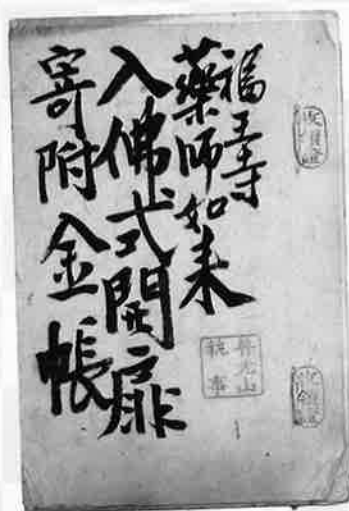 福王寺
藥師如来
入佛式開扉
寄附金帳